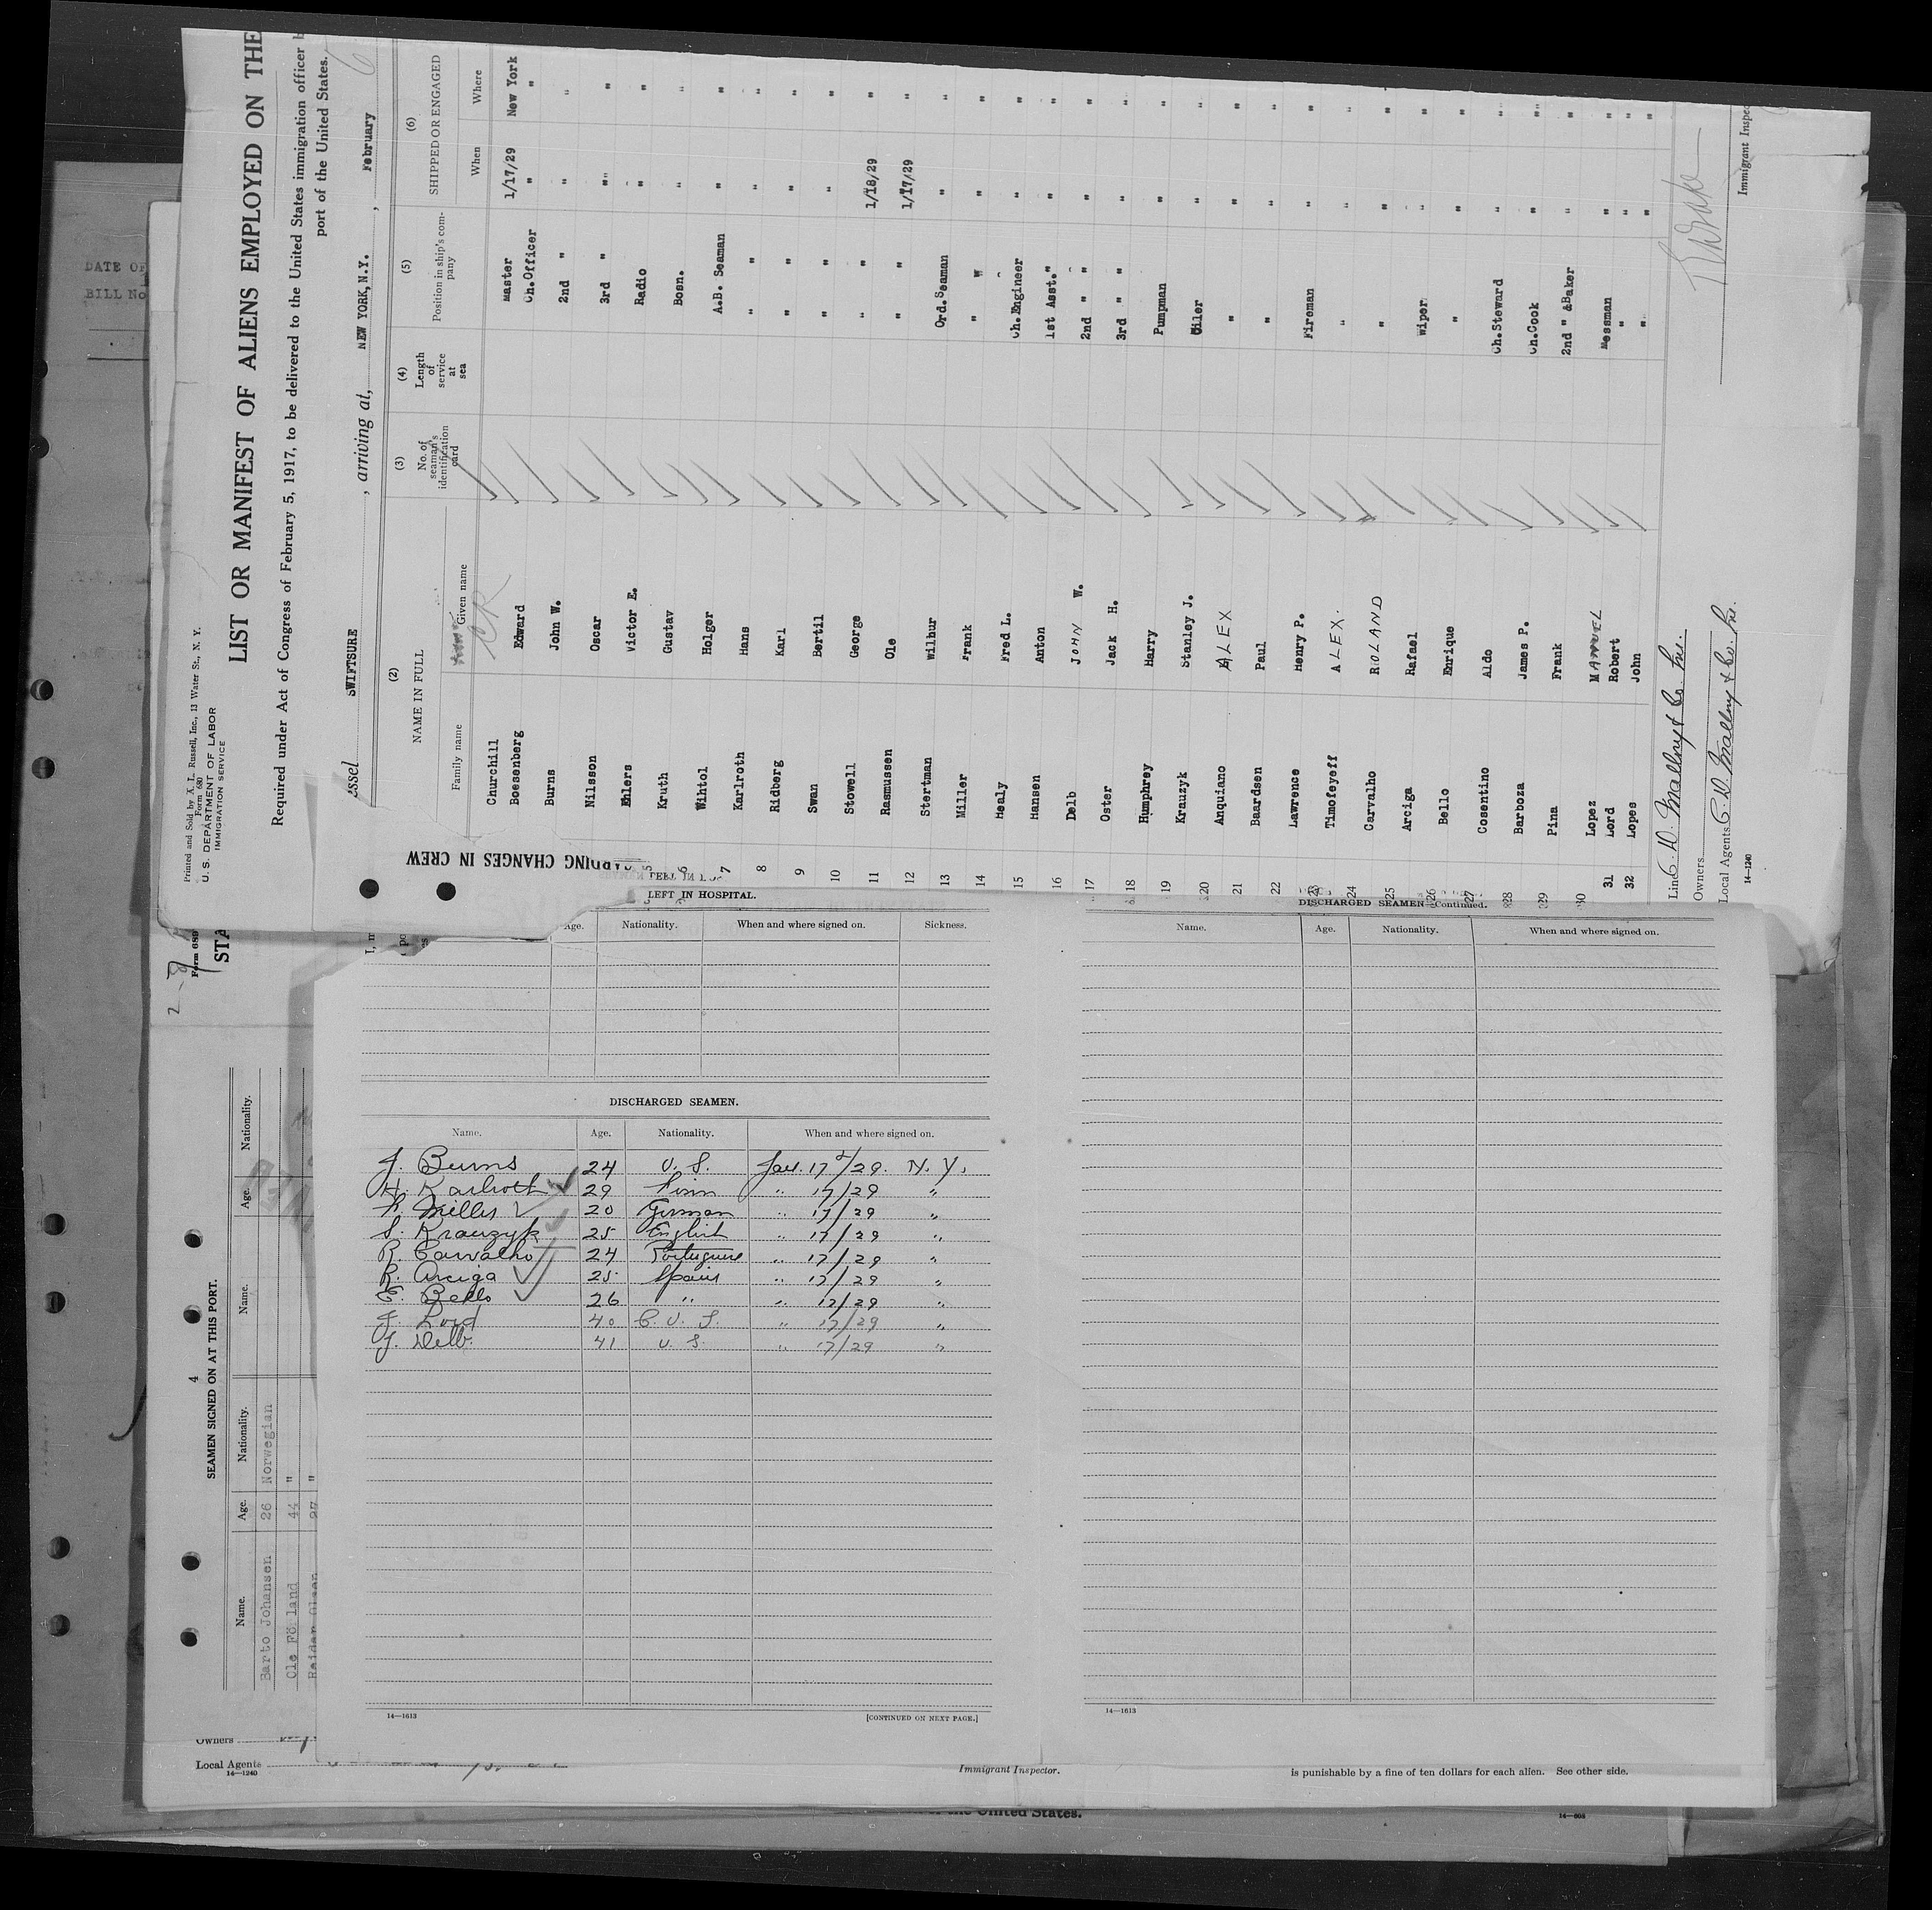 Printed and Sold by A. L. Russell, Inc., 13 Water St., N. Y.
Form 680
U. S. DEPARTMENT OF LABOR
IMMIGRATION SERVICE
LIST OR MANIFEST OF ALIENS EMPLOYED ON THE
Required under Act of Congress of February 5, 1917, to be delivered to the United States immigration officer
port of the United States.
SWIFTSURE , arriving at, NEW YORK, N.Y. , February 6
(2) (3) (4) (5) (6)
NAME IN FULL No. of seaman's identification card Length of service at sea Position in ship's company SHIPPED OR ENGAGED
Family name Given name When Where
Churchill Master 1/17/29 New York
Boesenberg Edward Ch.Officer " "
Burns John W. 2nd " " "
Nilsson Oscar 3rd " " "
5 Ehlers Victor E. Radio " "
6 Kruth Gustav Bosn. " "
7 Wihtol Holger A.B. Seaman " "
8 Karlroth Hans " " " "
9 Ridberg Karl " " " "
10 Swan Bertil " " " "
11 Stowell George " " 1/18/29 "
12 Rasmussen Ole " " 1/17/29 "
13 Stertman Wilbur Ord.Seaman " "
14 Miller Frank " " " "
15 Healy Fred L. Ch.Engineer " "
16 Hansen Anton 1st Asst." " "
17 Delb JOHN W. 2nd " " " "
18 Oster Jack H. 3rd " " " "
19 Humphrey Harry Pumpman " "
20 Krauzyk Stanley J. Oiler " "
21 Anquiano ALEX " " "
22 Baardsen Paul " " "
23 Lawrence Henry P. Fireman " "
24 Timofeyeff ALEX. " " "
25 Carvalho ROLAND " " "
26 Arciga Rafael Wiper " "
27 Bello Enrique " " "
28 Cosentino Aldo Ch.Steward " "
29 Barboza James P. Ch.Cook " "
30 Pina Frank 2nd " &Baker " "
Lopez MANUEL Messman " "
31 Lord Robert " " "
32 Lopes John " " "
Line C. D. Mallory & Co. Inc.
Owners
Local Agents C. D. Mallory & Co. Inc.
14-1240
Immigrant Inspec
DATE OF
BILL No
ARDING CHANGES IN CREW
Form 689
STA
LEFT IN HOSPITAL.
Age. Nationality. When and where signed on. Sickness.
DISCHARGED SEAMEN.
Name. Age. Nationality. When and where signed on.
J. Burns 24 U. S. Jan. 17/29. N. Y.
H. Karlroth 29 Finn " 17/29 "
F. Miller 20 German " 17/29 "
S. Krauzyk 25 English " 17/29 "
R. Carvalho 24 Portuguese " 17/29 "
R. Arciga 25 Spain " 17/29 "
E. Bello 26 " " 17/29 "
Lord 40 U. S. " 17/29 "
J. Delb. 41 U. S. " 17/29 "
14—1613
[CONTINUED ON NEXT PAGE.]
DISCHARGED SEAMEN—Continued.
Name. Age. Nationality. When and where signed on.
14—1613
4
SEAMEN SIGNED ON AT THIS PORT.
Name. Age. Nationality. Name. Age. Nationality.
Barto Johansen 26 Norwegian
Ole Föiland 44 "
Reidar Olsen 27 "
Owners
Local Agents
14—1240
Immigrant Inspector.
is punishable by a fine of ten dollars for each alien. See other side.
of the United States.